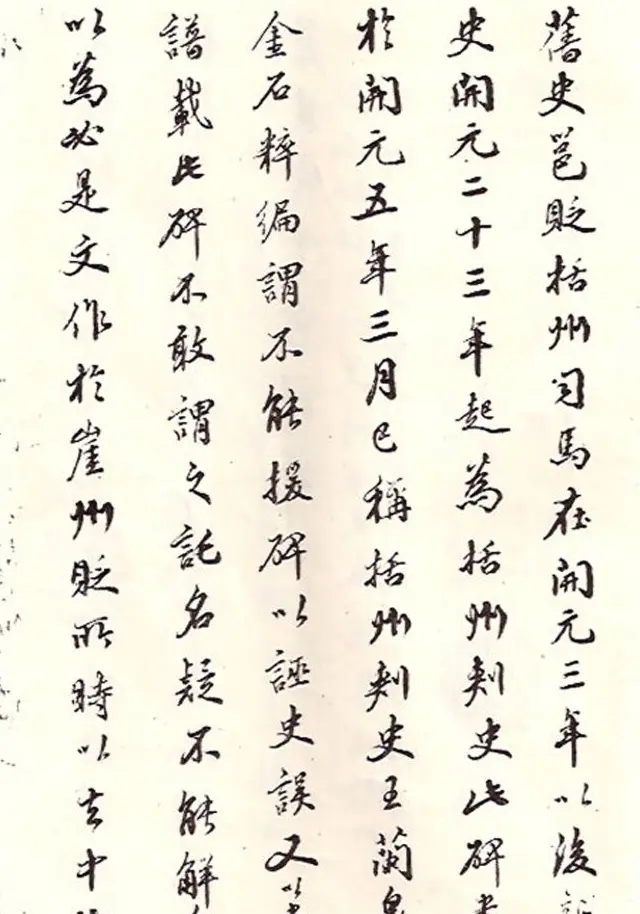 舊史邕貶括州司馬在開元三年以後
史開元二十三年起為括州刺史此碑書
於開元五年三月已稱括州刺史王蘭泉
金石粹編謂不能援碑以誣史誤又以
譜載此碑不敢謂之託名疑不能解
以為必是文作於崖州貶所時以去中